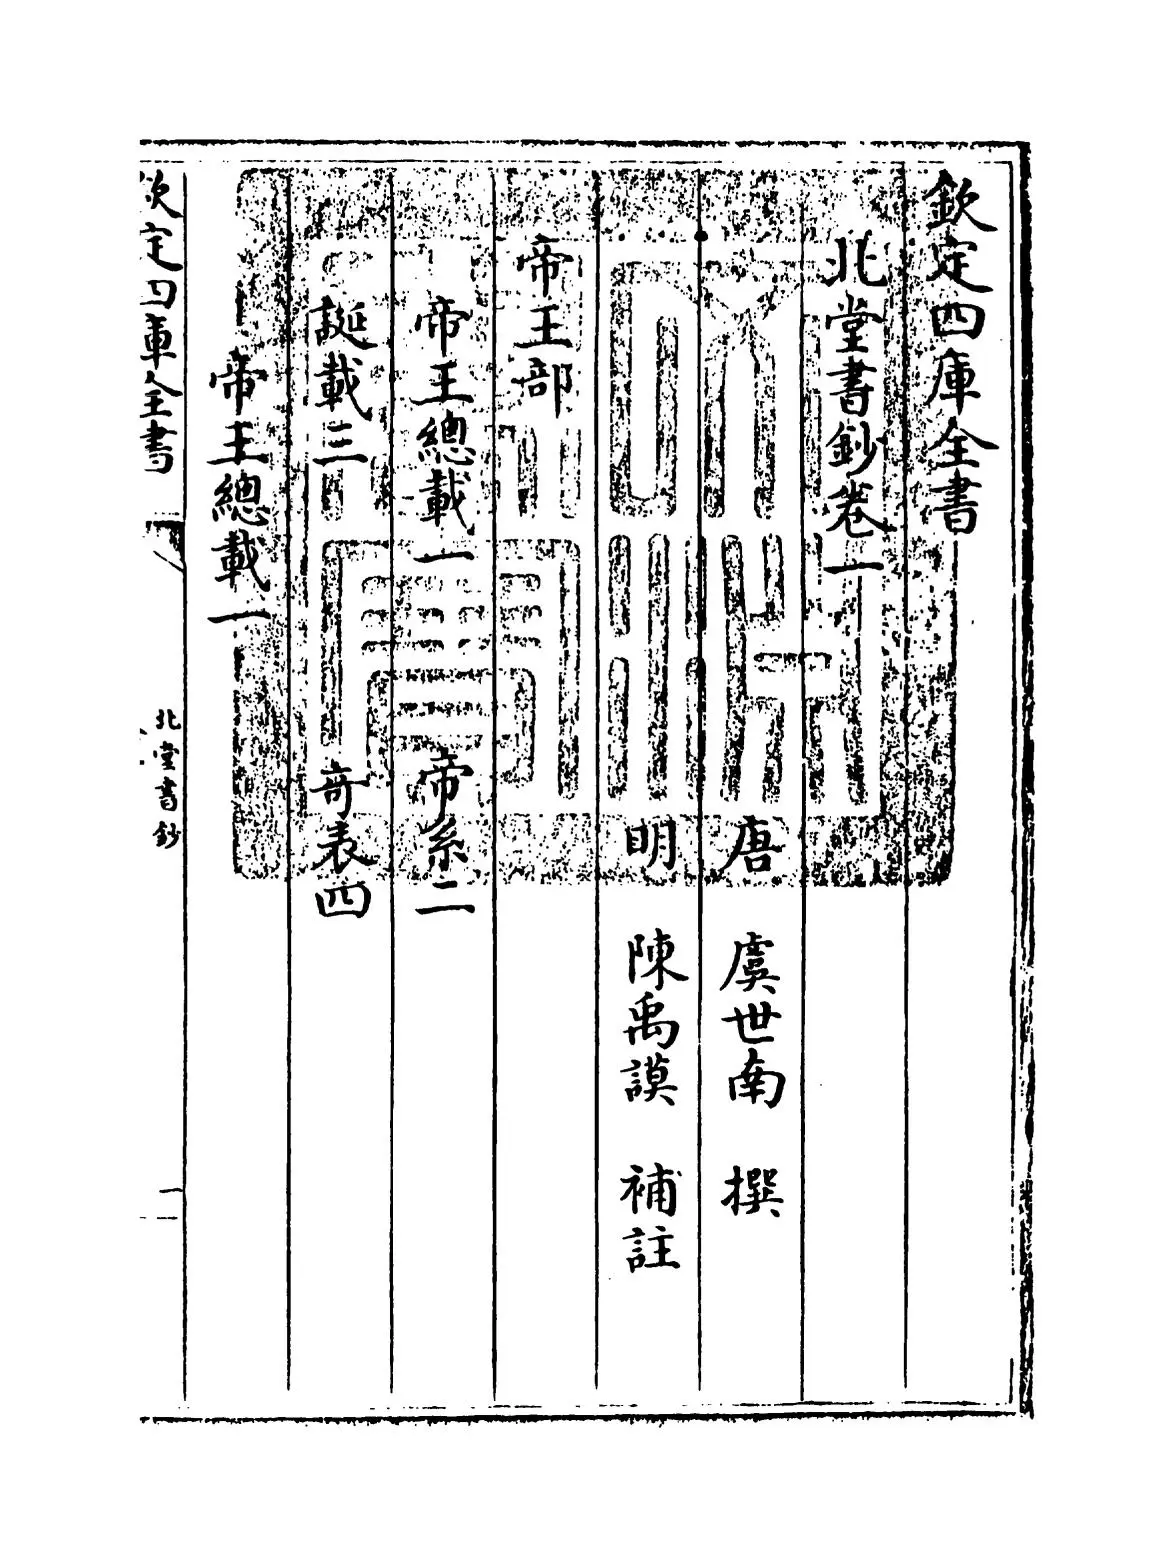 欽定四庫全書
北堂書鈔卷一
唐 虞世南 撰
明 陳禹謨 補註
帝王部
帝王總載一 帝系二
誕載三 奇表四
帝王總載一
欽定四庫全書
北堂書鈔
一